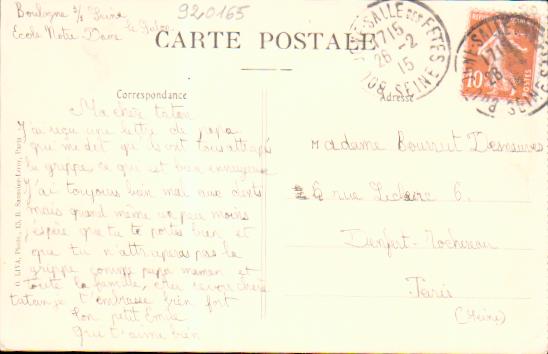 Boulogne s/s Seine
le 9 juin
Ecole Notre Dame
920165
CARTE POSTALE
BOULOGNE-SALLE DES FETES
17 15
26 - 2
15
SEINE
10
Correspondance
Adresse
Ma chère tatan
J'ai reçu une lettre de papa
qui me dit qu'ils ont tous attrapé
la grippe ce qui est bien ennuyeux
J'ai toujours bien mal aux dents
mais quand même un peu moins
j'espère que tu te portes bien et
que tu n'attraperas pas la
grippe comme papa maman et
toute la famille, Au revoir chère
tatan je t'embrasse bien fort
ton petit Emile
Qui t'aime bien
Madame Bourrut
6 rue Leclerc 6.
Denfert-Rochereau
Paris
(Seine)